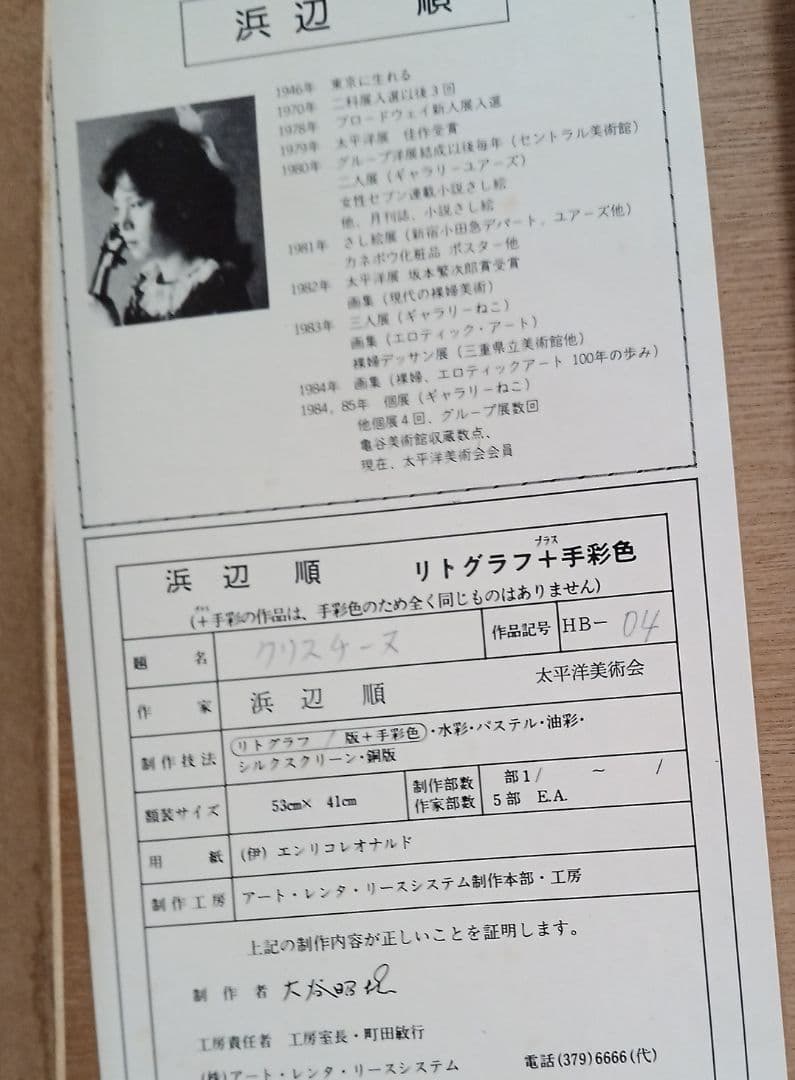 浜辺 順
1946年 東京に生れる
1970年 二科展入選以後3回
1978年 ブロードウェイ新人展入選
1979年 太平洋展 佳作受賞
1980年 グループ洋展結成以後毎年(セントラル美術館)
二人展(ギャラリーユアーズ)
女性セブン連載小説さし絵
他、月刊誌、小説さし絵
1981年 さし絵展(新宿小田急デパート、ユアーズ他)
カネボウ化粧品 ポスター他
1982年 太平洋展 坂本繁次郎賞受賞
画集(現代の裸婦美術)
1983年 三人展(ギャラリーねこ)
画集(エロティック・アート)
裸婦デッサン展(三重県立美術館他)
1984年 画集(裸婦、エロティックアート 100年の歩み)
1984, 85年 個展(ギャラリーねこ)
他個展4回、グループ展数回
亀谷美術館収蔵数点、
現在、太平洋美術会会員
浜辺 順 リトグラフ+手彩色
プラス
(+手彩の作品は、手彩色のため全く同じものはありません)
題名 クリスチーヌ 作品記号 HB- 04
作家 浜辺 順 太平洋美術会
制作技法 リトグラフ 1 版+手彩色・水彩・パステル・油彩・
シルクスクリーン・銅版
額装サイズ 53cm× 41cm 制作部数 部1/ ~ /
作家部数 5部 E.A.
用紙 (伊) エンリコレオナルド
制作工房 アート・レンタ・リースシステム制作本部・工房
上記の制作内容が正しいことを証明します。
制作者
工房責任者 工房室長・町田敏行
(株)アート・レンタ・リースシステム 電話(379)6666(代)